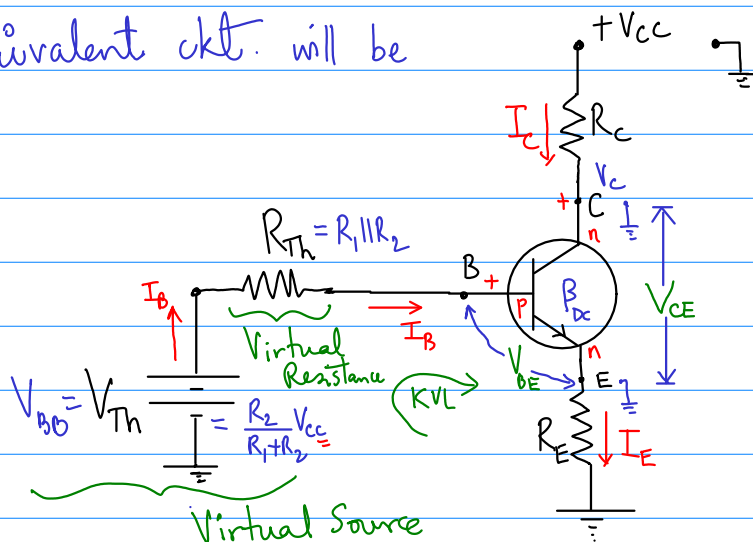 uivalent ckt. will be
+VCC
IC
RC
VC
+ C
n
RTh = R1||R2
B +
IB
IB
P
βDC
VCE
Virtual
Resistance
VBE
n
E
KVL
VBB = VTh = R2/(R1+R2) VCC
RE
IE
Virtual Source